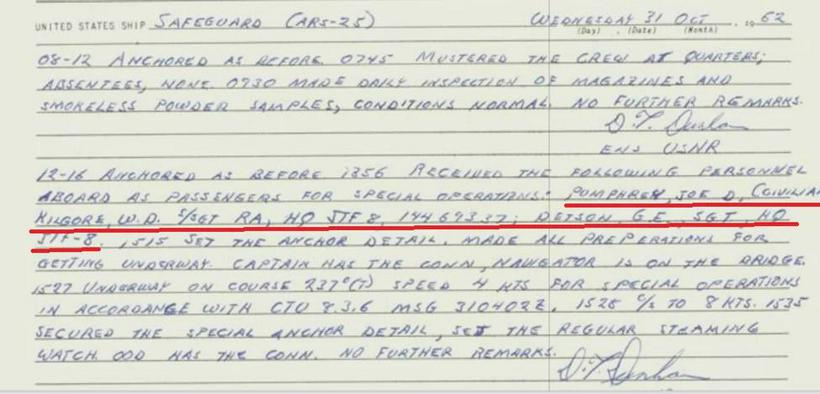 UNITED STATES SHIP SAFEGUARD (ARS-25) WEDNESDAY 31 OCT , 1962
(Day) , (Date) (Month)
08-12 ANCHORED AS BEFORE 0745 MUSTERED THE CREW AT QUARTERS;
ABSENTEES, NONE. 0930 MADE DAILY INSPECTION OF MAGAZINES AND
SMOKELESS POWDER SAMPLES, CONDITIONS NORMAL. NO FURTHER REMARKS.
ENS USNR
12-16 ANCHORED AS BEFORE 1356 RECEIVED THE FOLLOWING PERSONNEL
ABOARD AS PASSENGERS FOR SPECIAL OPERATIONS: POMPHREY, JOE D, (CIVILIAN
KILGORE, W.D. S/SGT RA, HQ JTF 8, 14469337; DETSON, G.E., SGT, HQ
JTF-8. 1515 SET THE ANCHOR DETAIL. MADE ALL PREPERATIONS FOR
GETTING UNDERWAY. CAPTAIN HAS THE CONN, NAVIGATOR IS ON THE BRIDGE.
1527 UNDERWAY ON COURSE 237°(T) SPEED 4 KTS FOR SPECIAL OPERATIONS
IN ACCORDANCE WITH CTU 8.3.6 MSG 310402Z. 1528 C/S TO 8 KTS. 1535
SECURED THE SPECIAL ANCHOR DETAIL, SET THE REGULAR STEAMING
WATCH. OOD HAS THE CONN. NO FURTHER REMARKS.